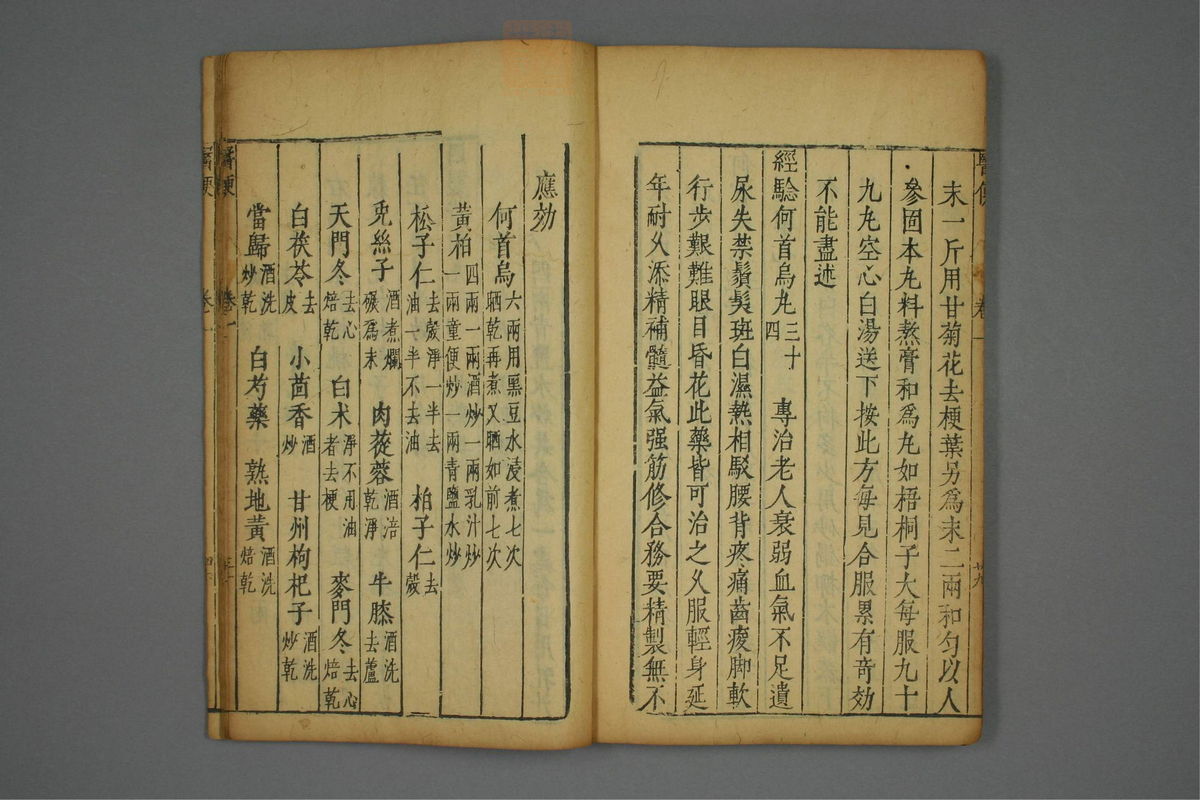 末一斤用甘菊花去梗葉另爲末二兩和匀以人
參固本丸料熬膏和爲丸如梧桐子大每服九十
九丸空心白湯送下按此方每見合服累有奇効
不能盡述
經驗何首烏丸三十四　專治老人衰弱血氣不足遺
尿失禁鬚髮斑白濕熱相駁腰背疼痛齒痠脚軟
行步艱難眼目昏花此藥皆可治之久服輕身延
年耐久添精補髓益氣强筋修合務要精製無不
應効
何首烏六兩用黑豆水浸煮七次晒乾再煮又晒如前七次
黃柏四兩一兩酒炒一兩乳汁炒一兩童便炒一兩青鹽水炒
松子仁去殼淨一半去油一半不去油　柏子仁去殼
兎絲子酒煮爛碾爲末　肉蓯蓉酒涪乾淨　牛膝酒洗去蘆
天門冬去心焙乾　白朮淨不用油者去梗　麥門冬去心焙乾
白茯苓去皮　小茴香酒炒　甘州枸杞子酒洗炒乾
當歸酒洗炒乾　白芍藥　熟地黃酒洗焙乾
醫便　卷一